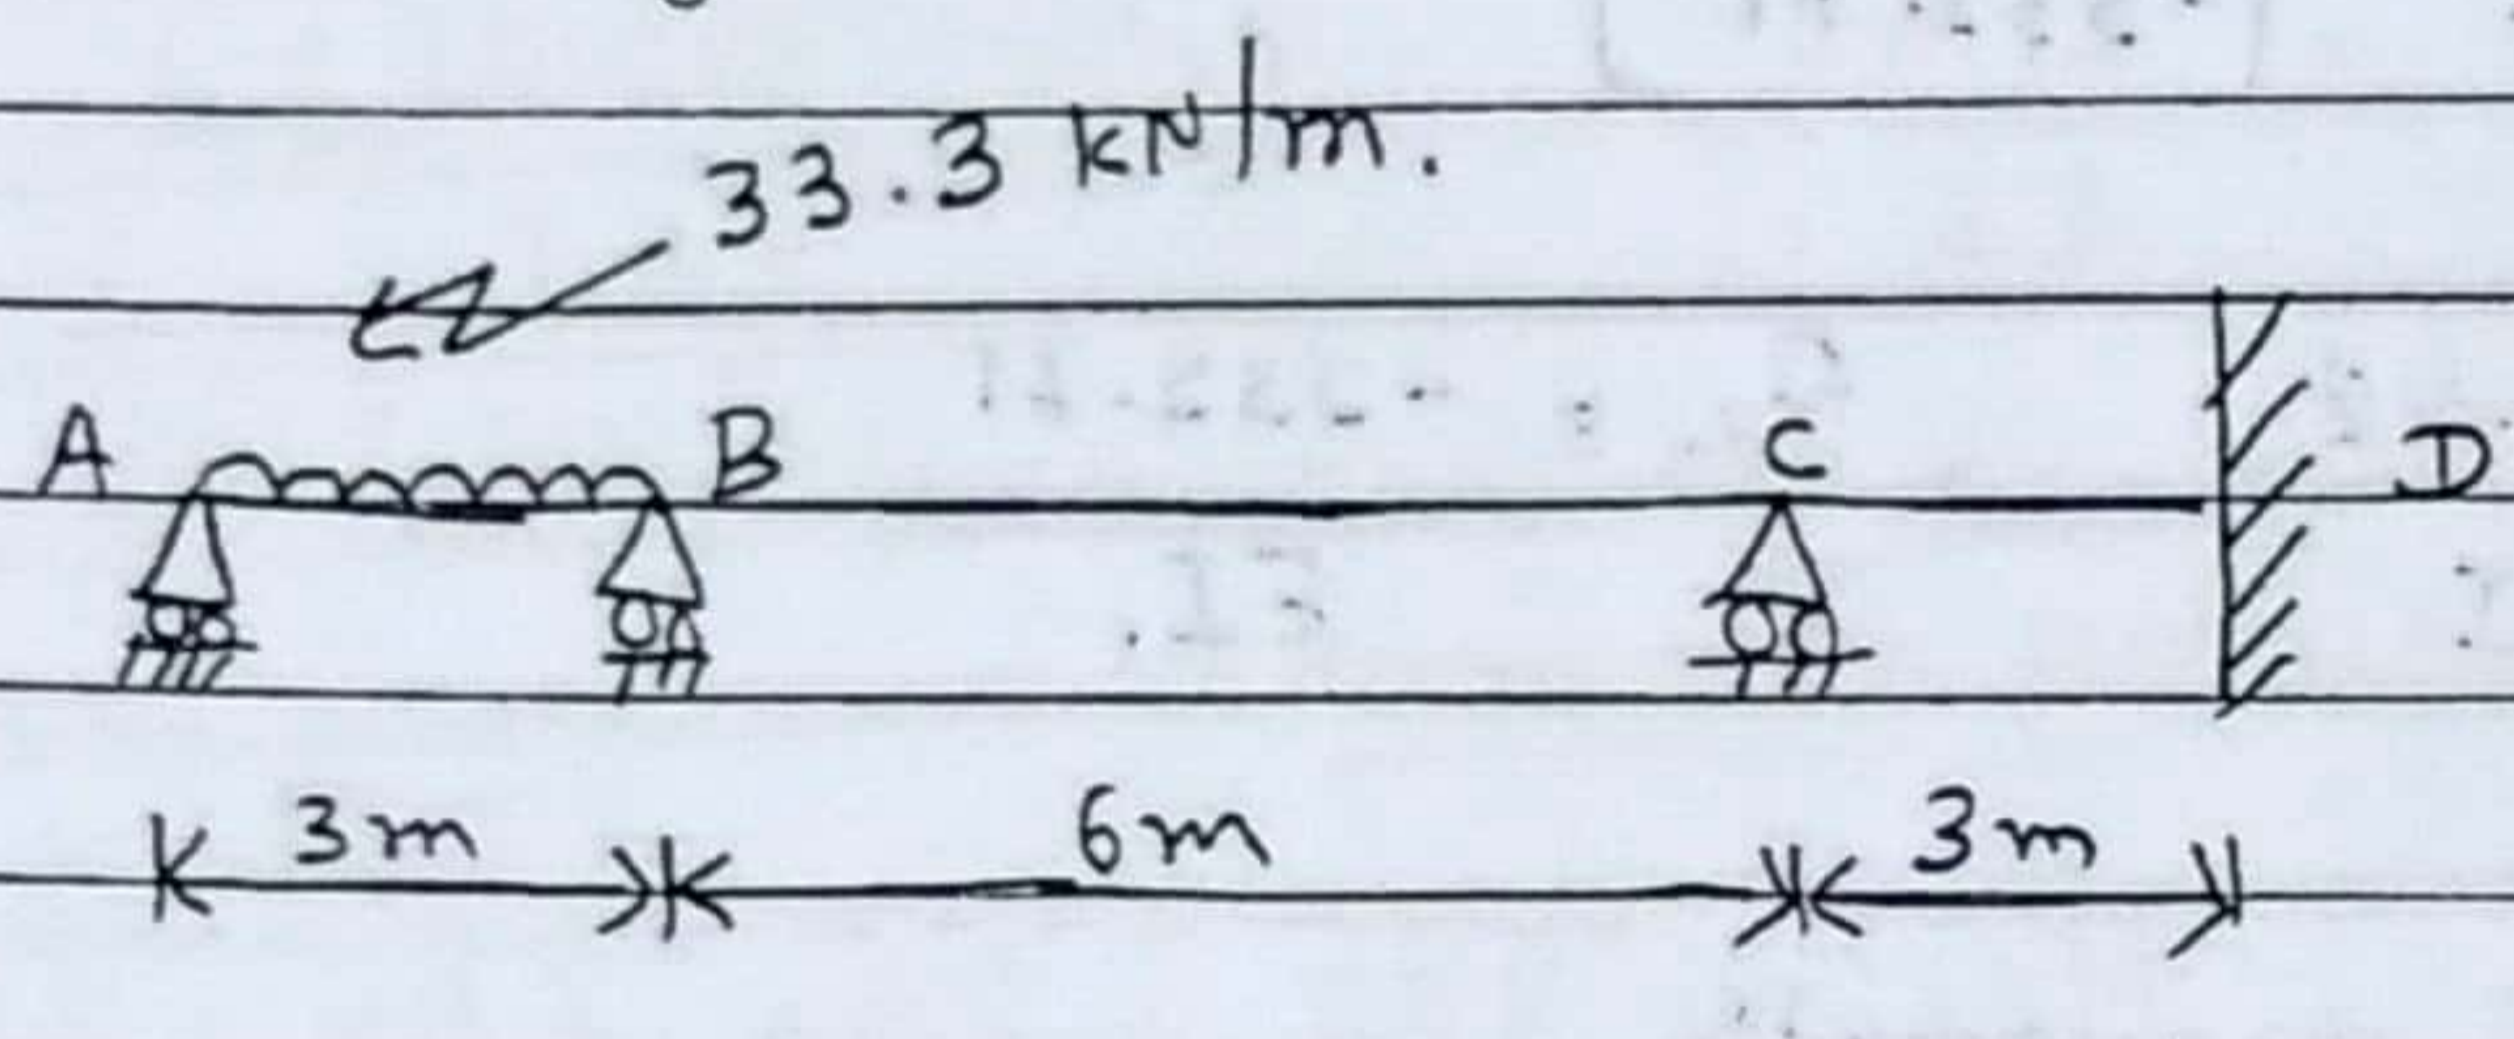 33.3 kN/m.
A B C D
3m 6m 3m